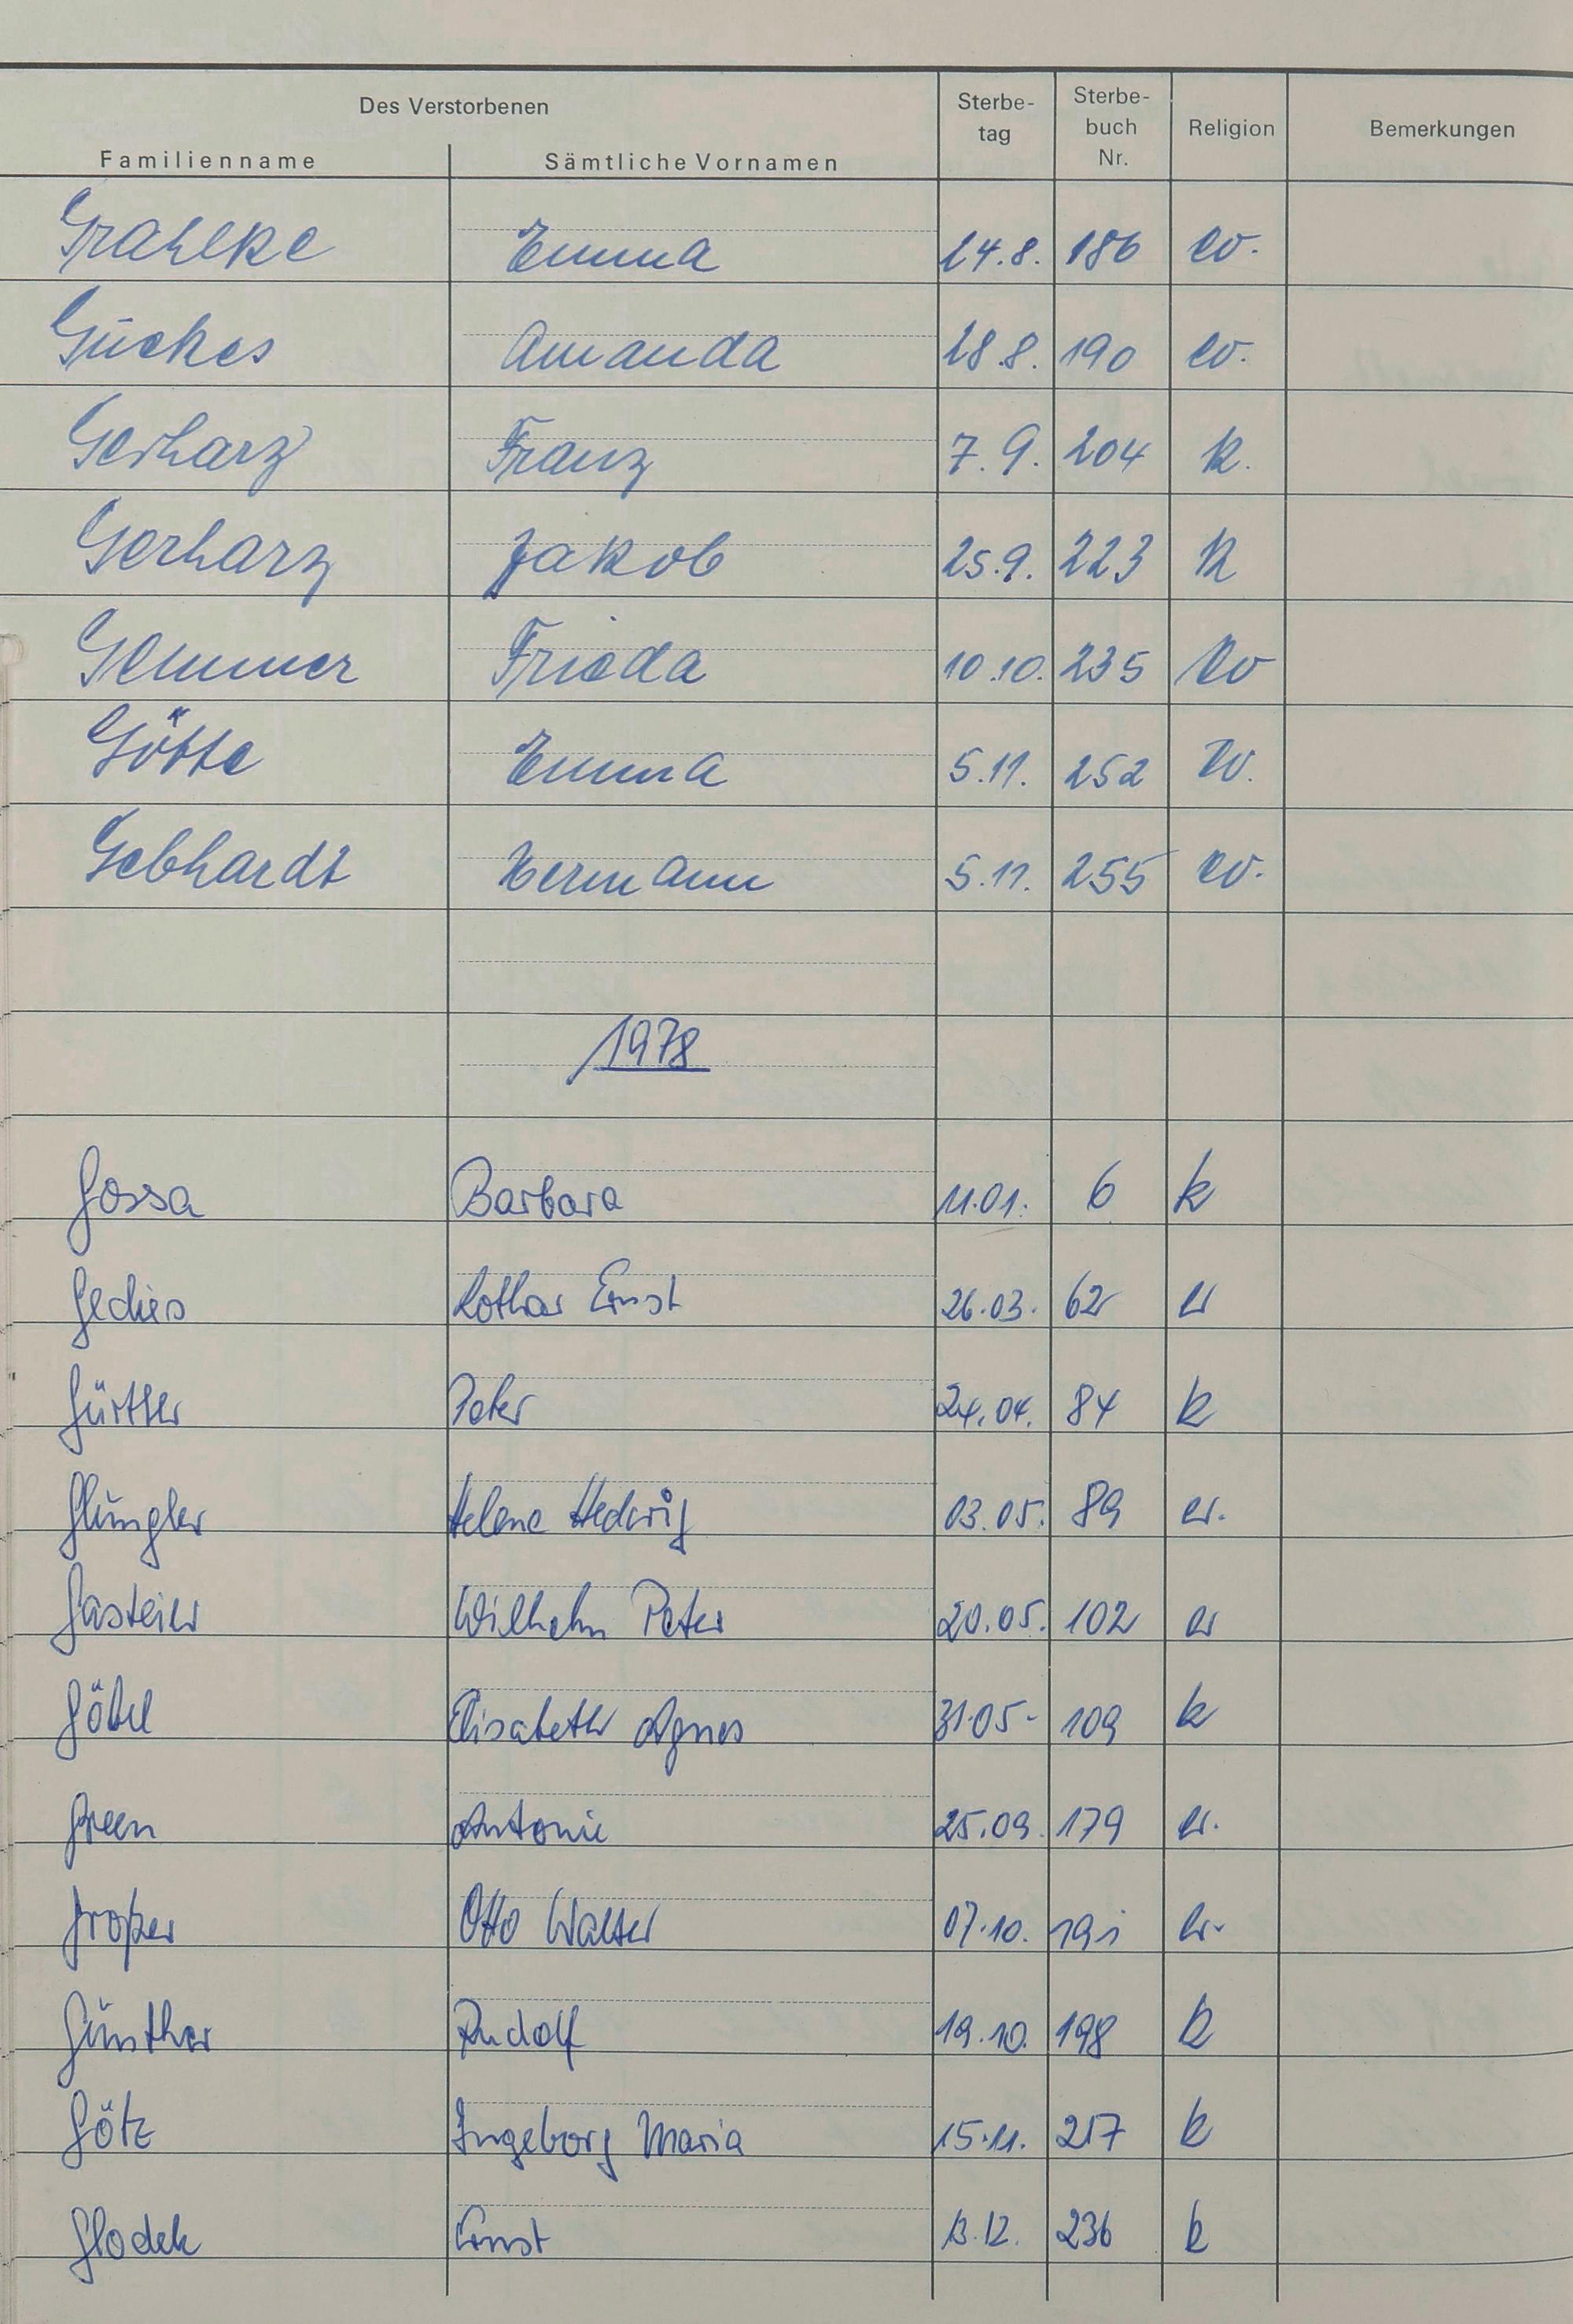 Des Verstorbenen
Familienname Sämtliche Vornamen Sterbe-tag Sterbe-buch Nr. Religion Bemerkungen
Grahlke Emma 24.8. 186 ev.
Guckes Amanda 28.8. 190 ev.
Gerharz Franz 7.9. 204 k.
Gerharz Jakob 25.9. 223 k
Gemmer Frieda 10.10. 235 ev
Götte Emma 5.11. 252 ev.
Gebhardt Hermann 5.11. 255 ev.
1978
Gossa Barbara 11.01. 6 k
Gedies Lothar Ernst 26.03. 62 ev
Gürtler Peter 24.04. 84 k
Glüngler Helene Hedwig 03.05. 89 ev.
Gasteier Wilhelm Peter 20.05. 102 ev
Göbel Elisabeth Agnes 31.05. 109 k
Green Antonie 25.09. 179 ev.
Großer Otto Walter 07.10. 191 ev.
Günther Rudolf 19.10. 198 k
Götz Ingeborg Maria 15.11. 217 k
Glodek Ernst 13.12. 236 k